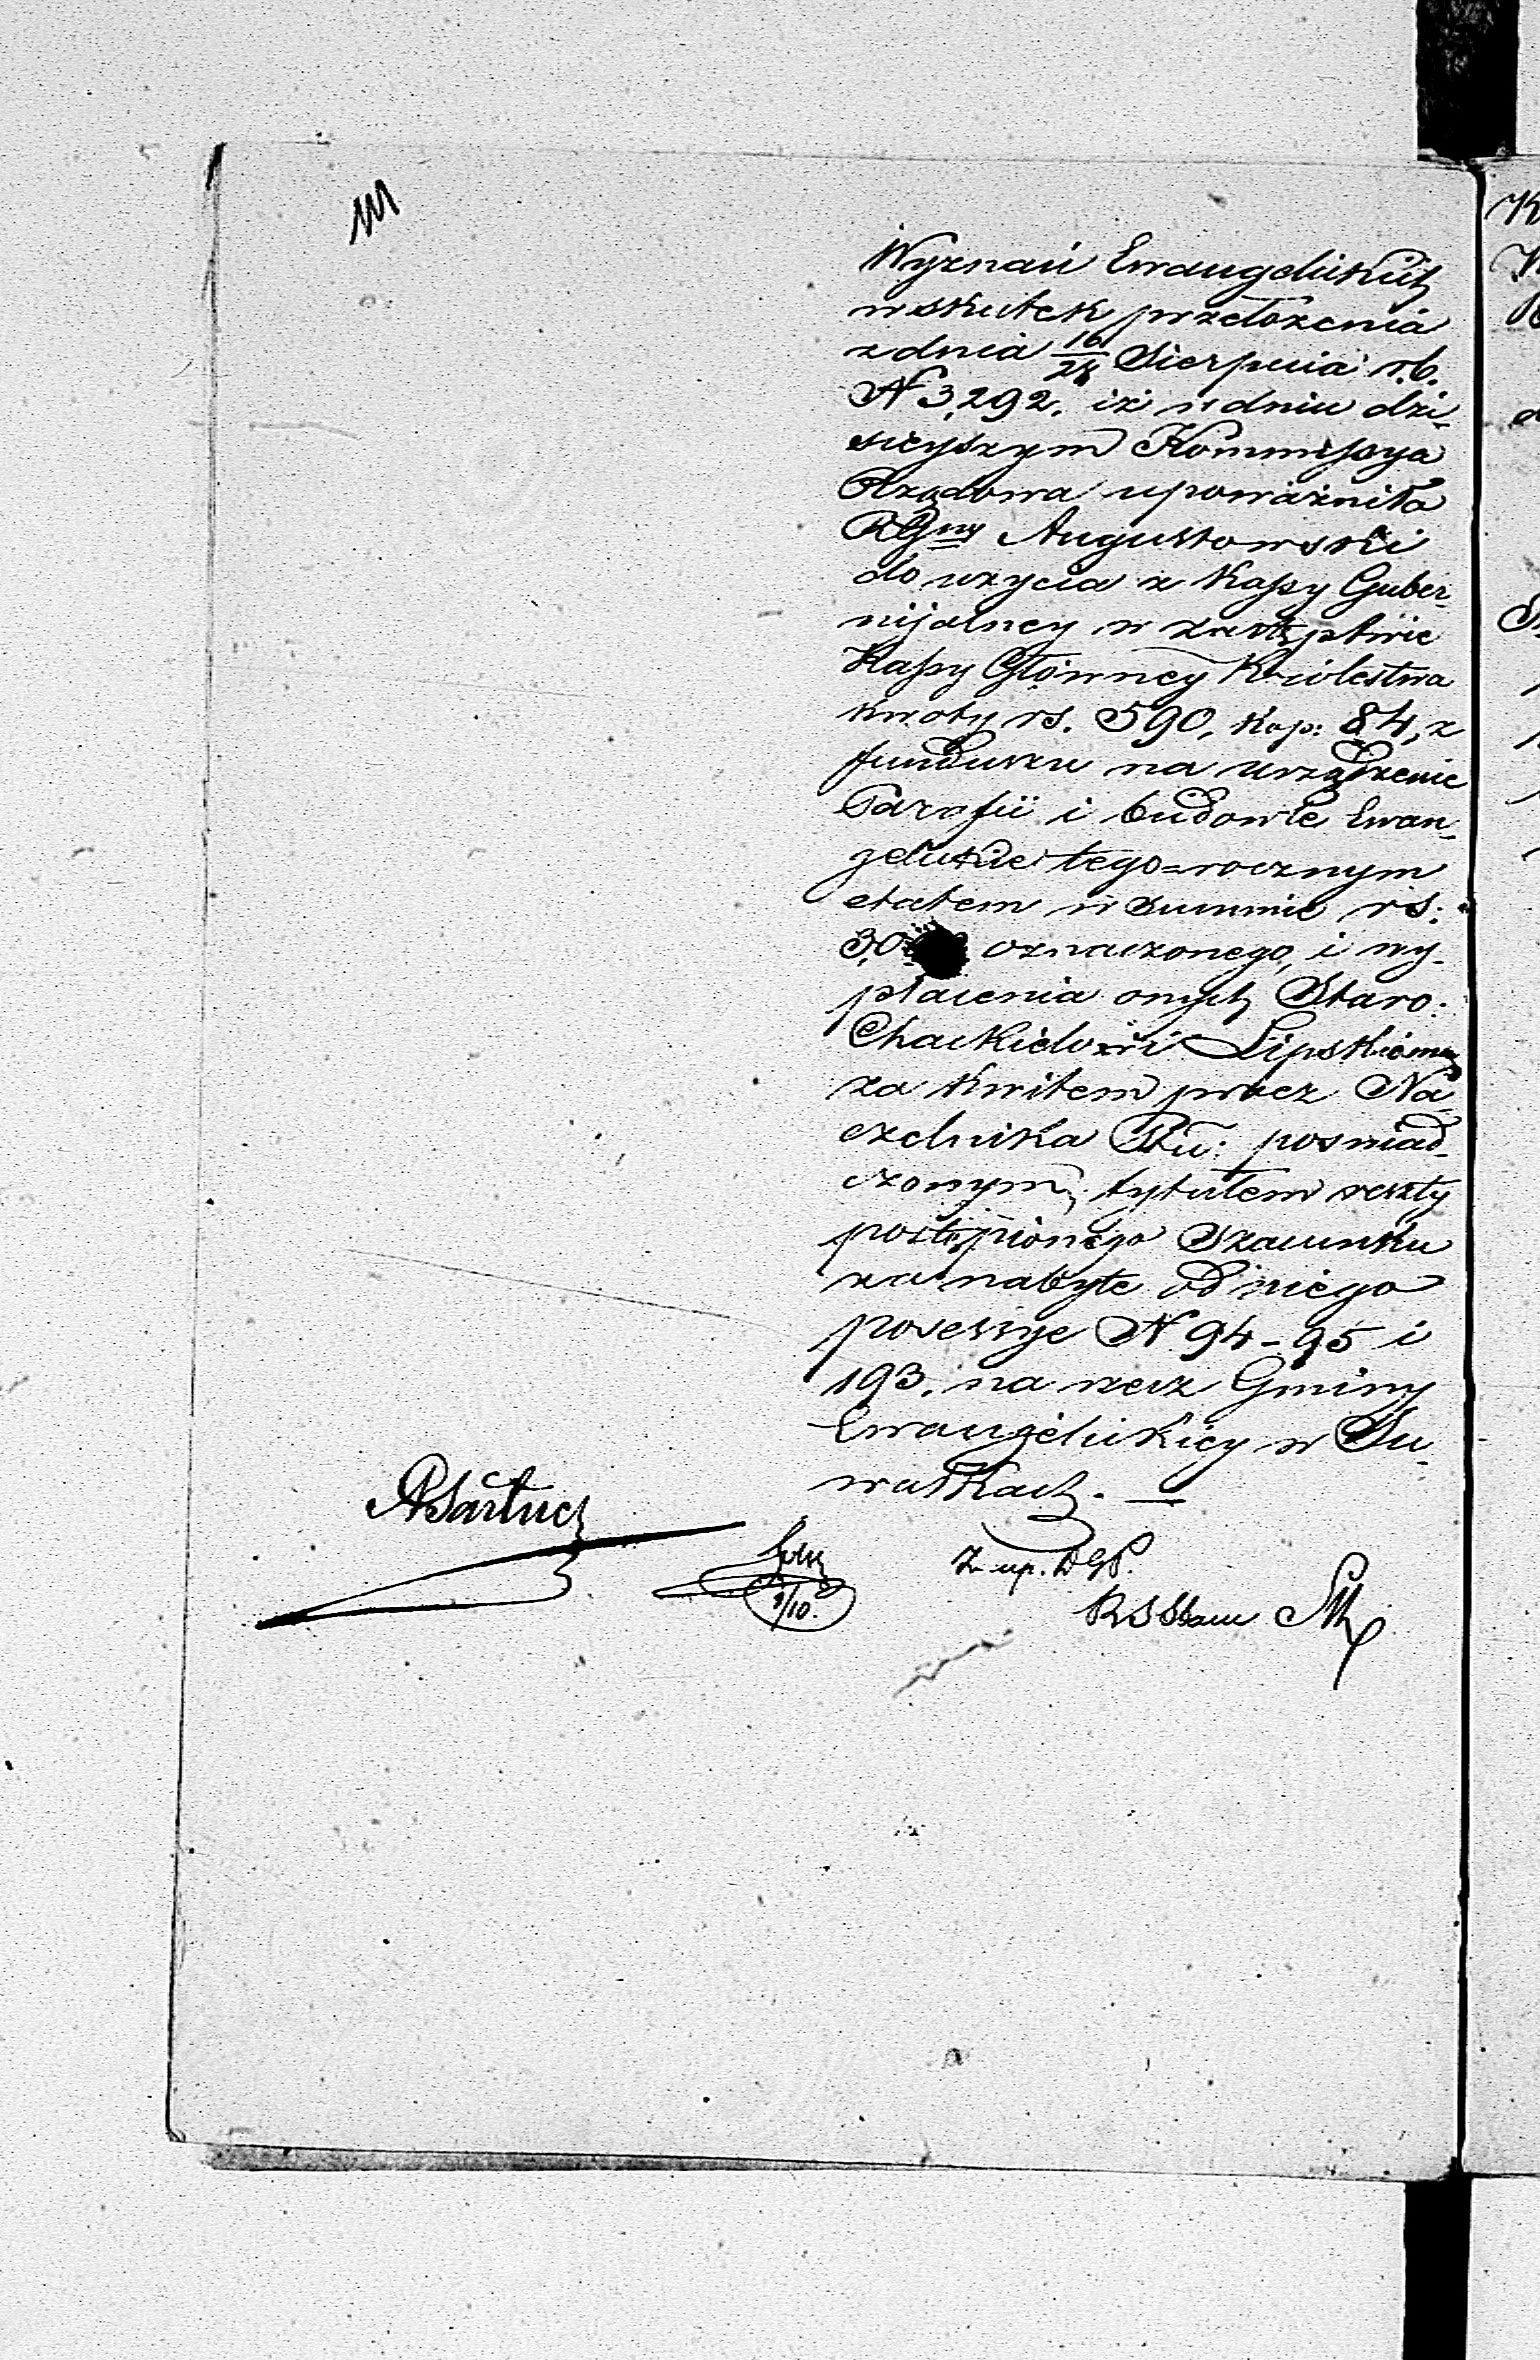 Wyznań Ewangelickich
wskutek przełożenia
z dnia 16/28 Sierpnia r.b.
N 3,292. iż w dniu dzi-
sieyszym Kommissya
Rządowa upoważniła
RGny Augustowski
do użycia z Kassy Guber-
nijalney w zastępstwie
Kassy Główney Królestwa
kwoty rs. 590, kop: 84, z
funduszu na urządzenie
Parafii i budowle Ewan-
gelickie tego=rocznym
etatem w summie rs:
oznaczonego, i wy-
płacenia onych Staro:
Chackielowi Lipskiemu
za kwitem przez Na-
czelnika Ptu: poświad-
czonym, tytułem reszty
postąpionego szacunku
za nabyte od niego
posessye N 94-95 i
193. na rzecz Gminy
Ewangelickiey w Su-
wałkach. —
Z up. D G P.
9/10.